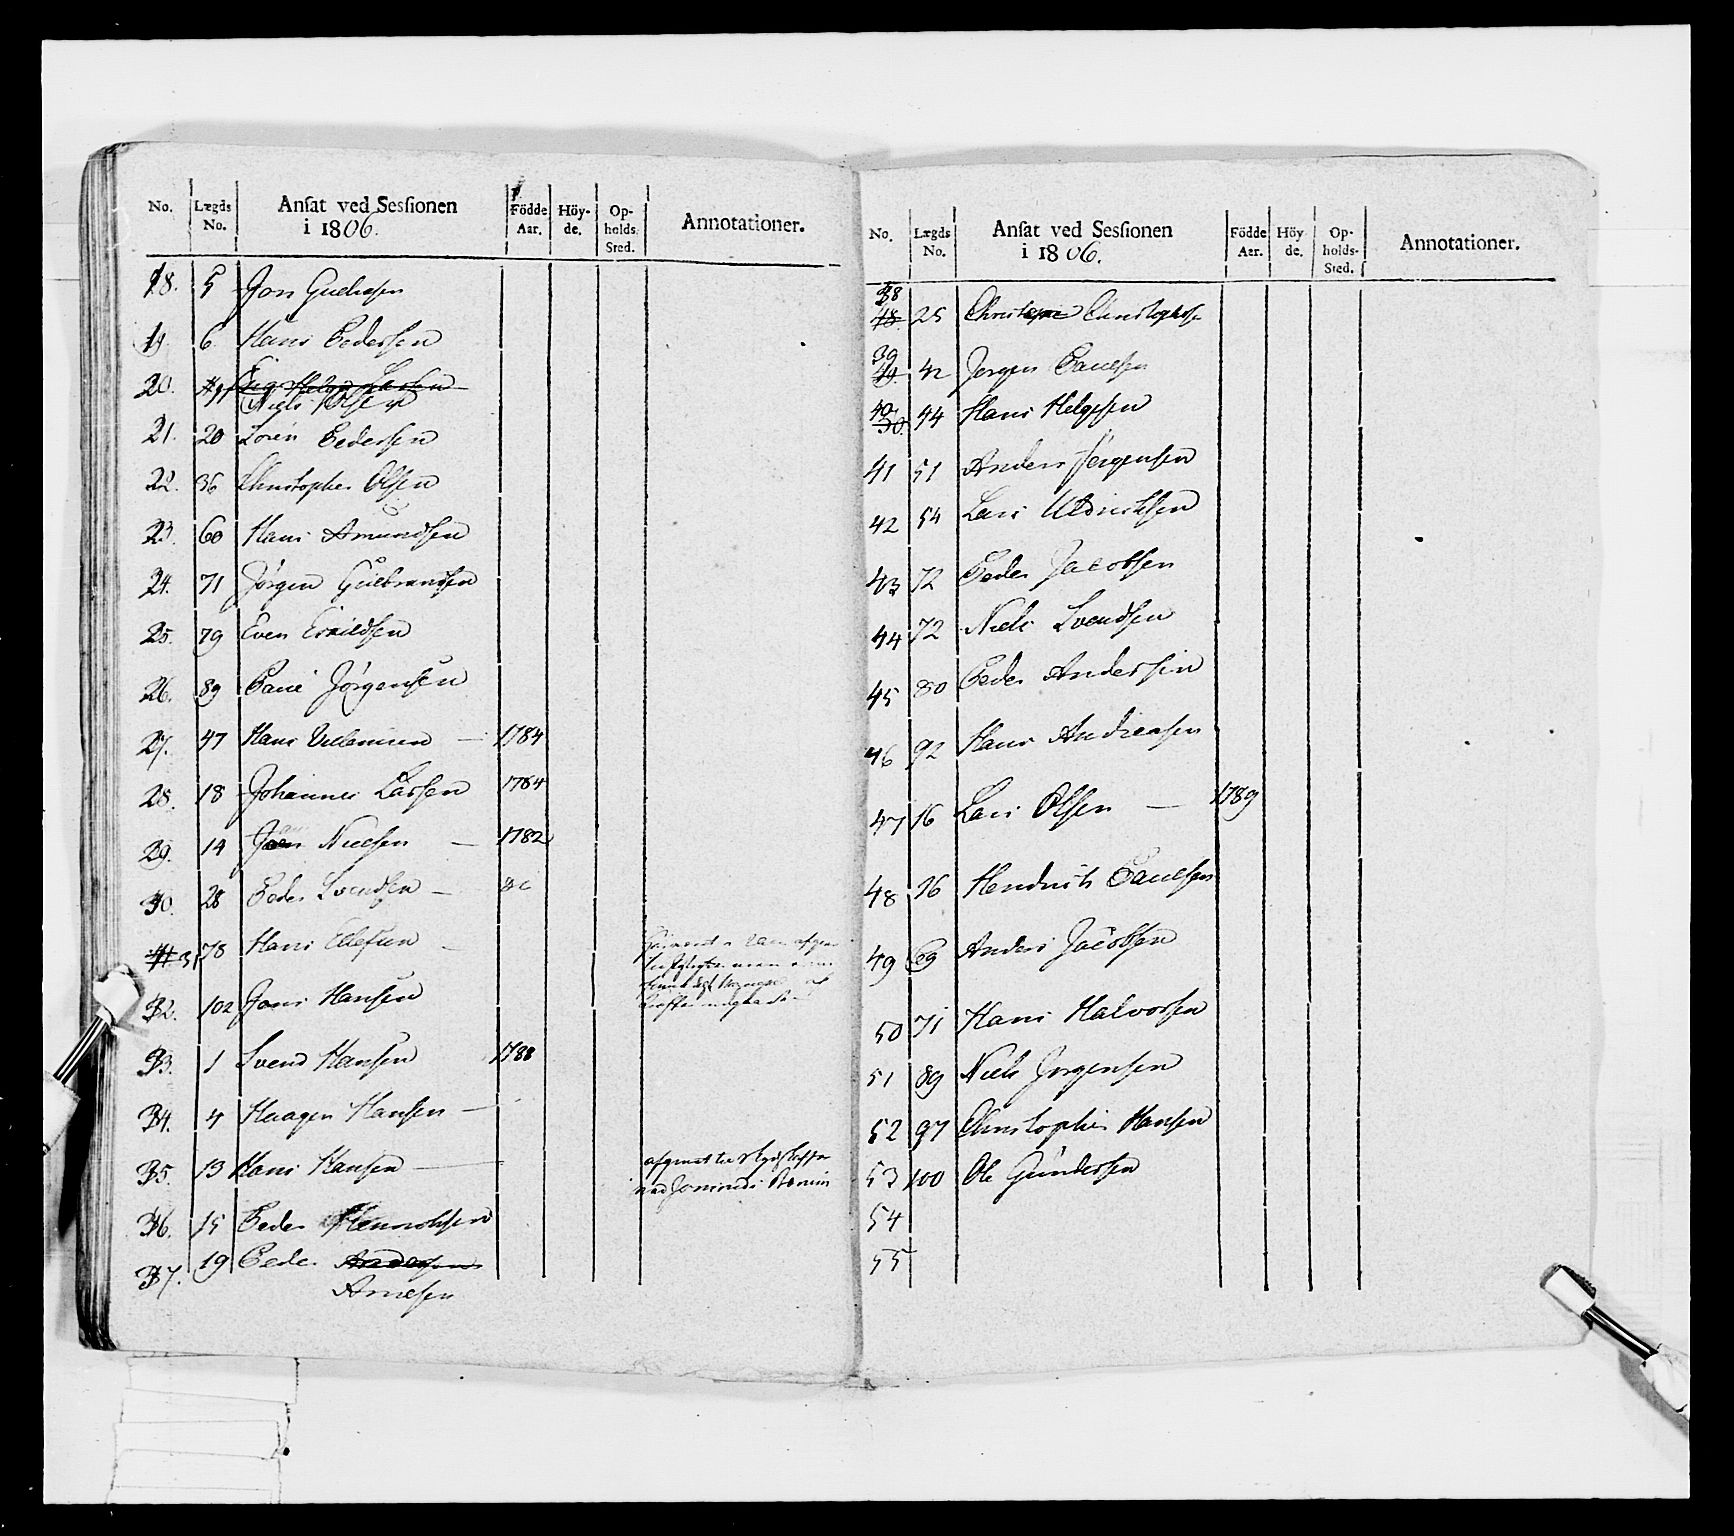 No. Lægds No. Ansat ved Sessionen i 1806. Födde Aar. Höyde. Opholds Sted. Annotationer.
18. 5 Jon
19. 6 Hans Pedersen
20. Larsen
Niels Olsen
21. 20 Sören Pedersen
22. 36 Christopher Olsen
23. 60 Hans Amundsen
24. 71 Jörgen Gulbrandsen
25. 79 Even
26. 89 Poul Jörgensen
27. 47 Hans Willumsen — 1784
28. 18 Johannes Larsen 1784
29. 14 Nielsen — 1782
30. 28 Peder Svendsen —
31 78 Hans Ellefsen
32. 102 Jens Hansen
33. 1 Svend Hansen 1788
34. 4 Haagen Hansen —
35. 13 Hans Hansen —
36. 15 Peder Hendrichsen
37. 19 Peder Andersen
Arnesen
No. Lægds No. Ansat ved Sessionen i 1806. Födde Aar. Höyde. Opholds-Sted. Annotationer.
38 25 Christopher Christophersen
39 42 Jörgen Paulsen
40 44 Hans Helgesen
41 51 Anders Jörgensen
42 54 Lars Uldrichsen
43 72 Peder Jacobsen
44 72 Niels Svendsen
45 80 Peder Andersen
46 92 Hans Andreasen
47 16 Lars Olsen — 1789
48 26 Hendrich Paulsen
49 69 Anders Jacobsen
50 71 Hans Halvorsen
51 89 Niels Jörgensen
52 97 Christopher Hansen
53 100 Ole Gundersen
54
55